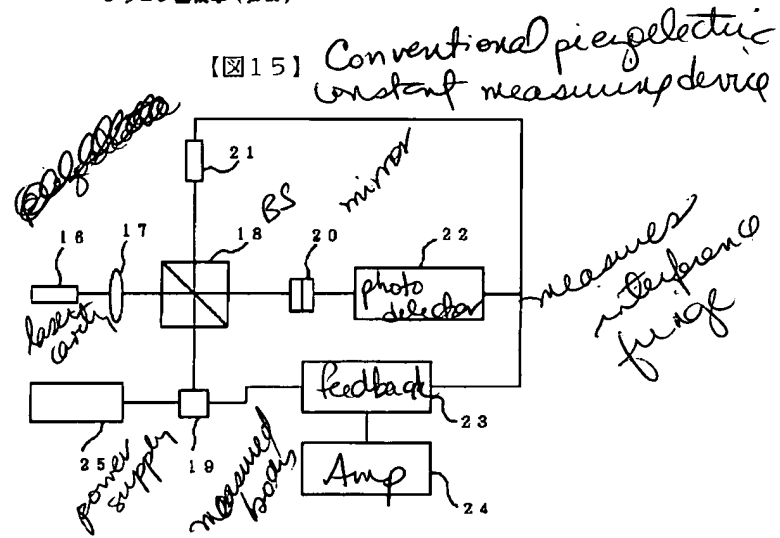 【図15】 Conventional piezoelectric
constant measuring device
21
BS
mirror
16
17
18
20
22
laser
cavity
photo
detector
measures
interference
fringe
feedback
23
25
19
power
supply
measured
body
Amp
24